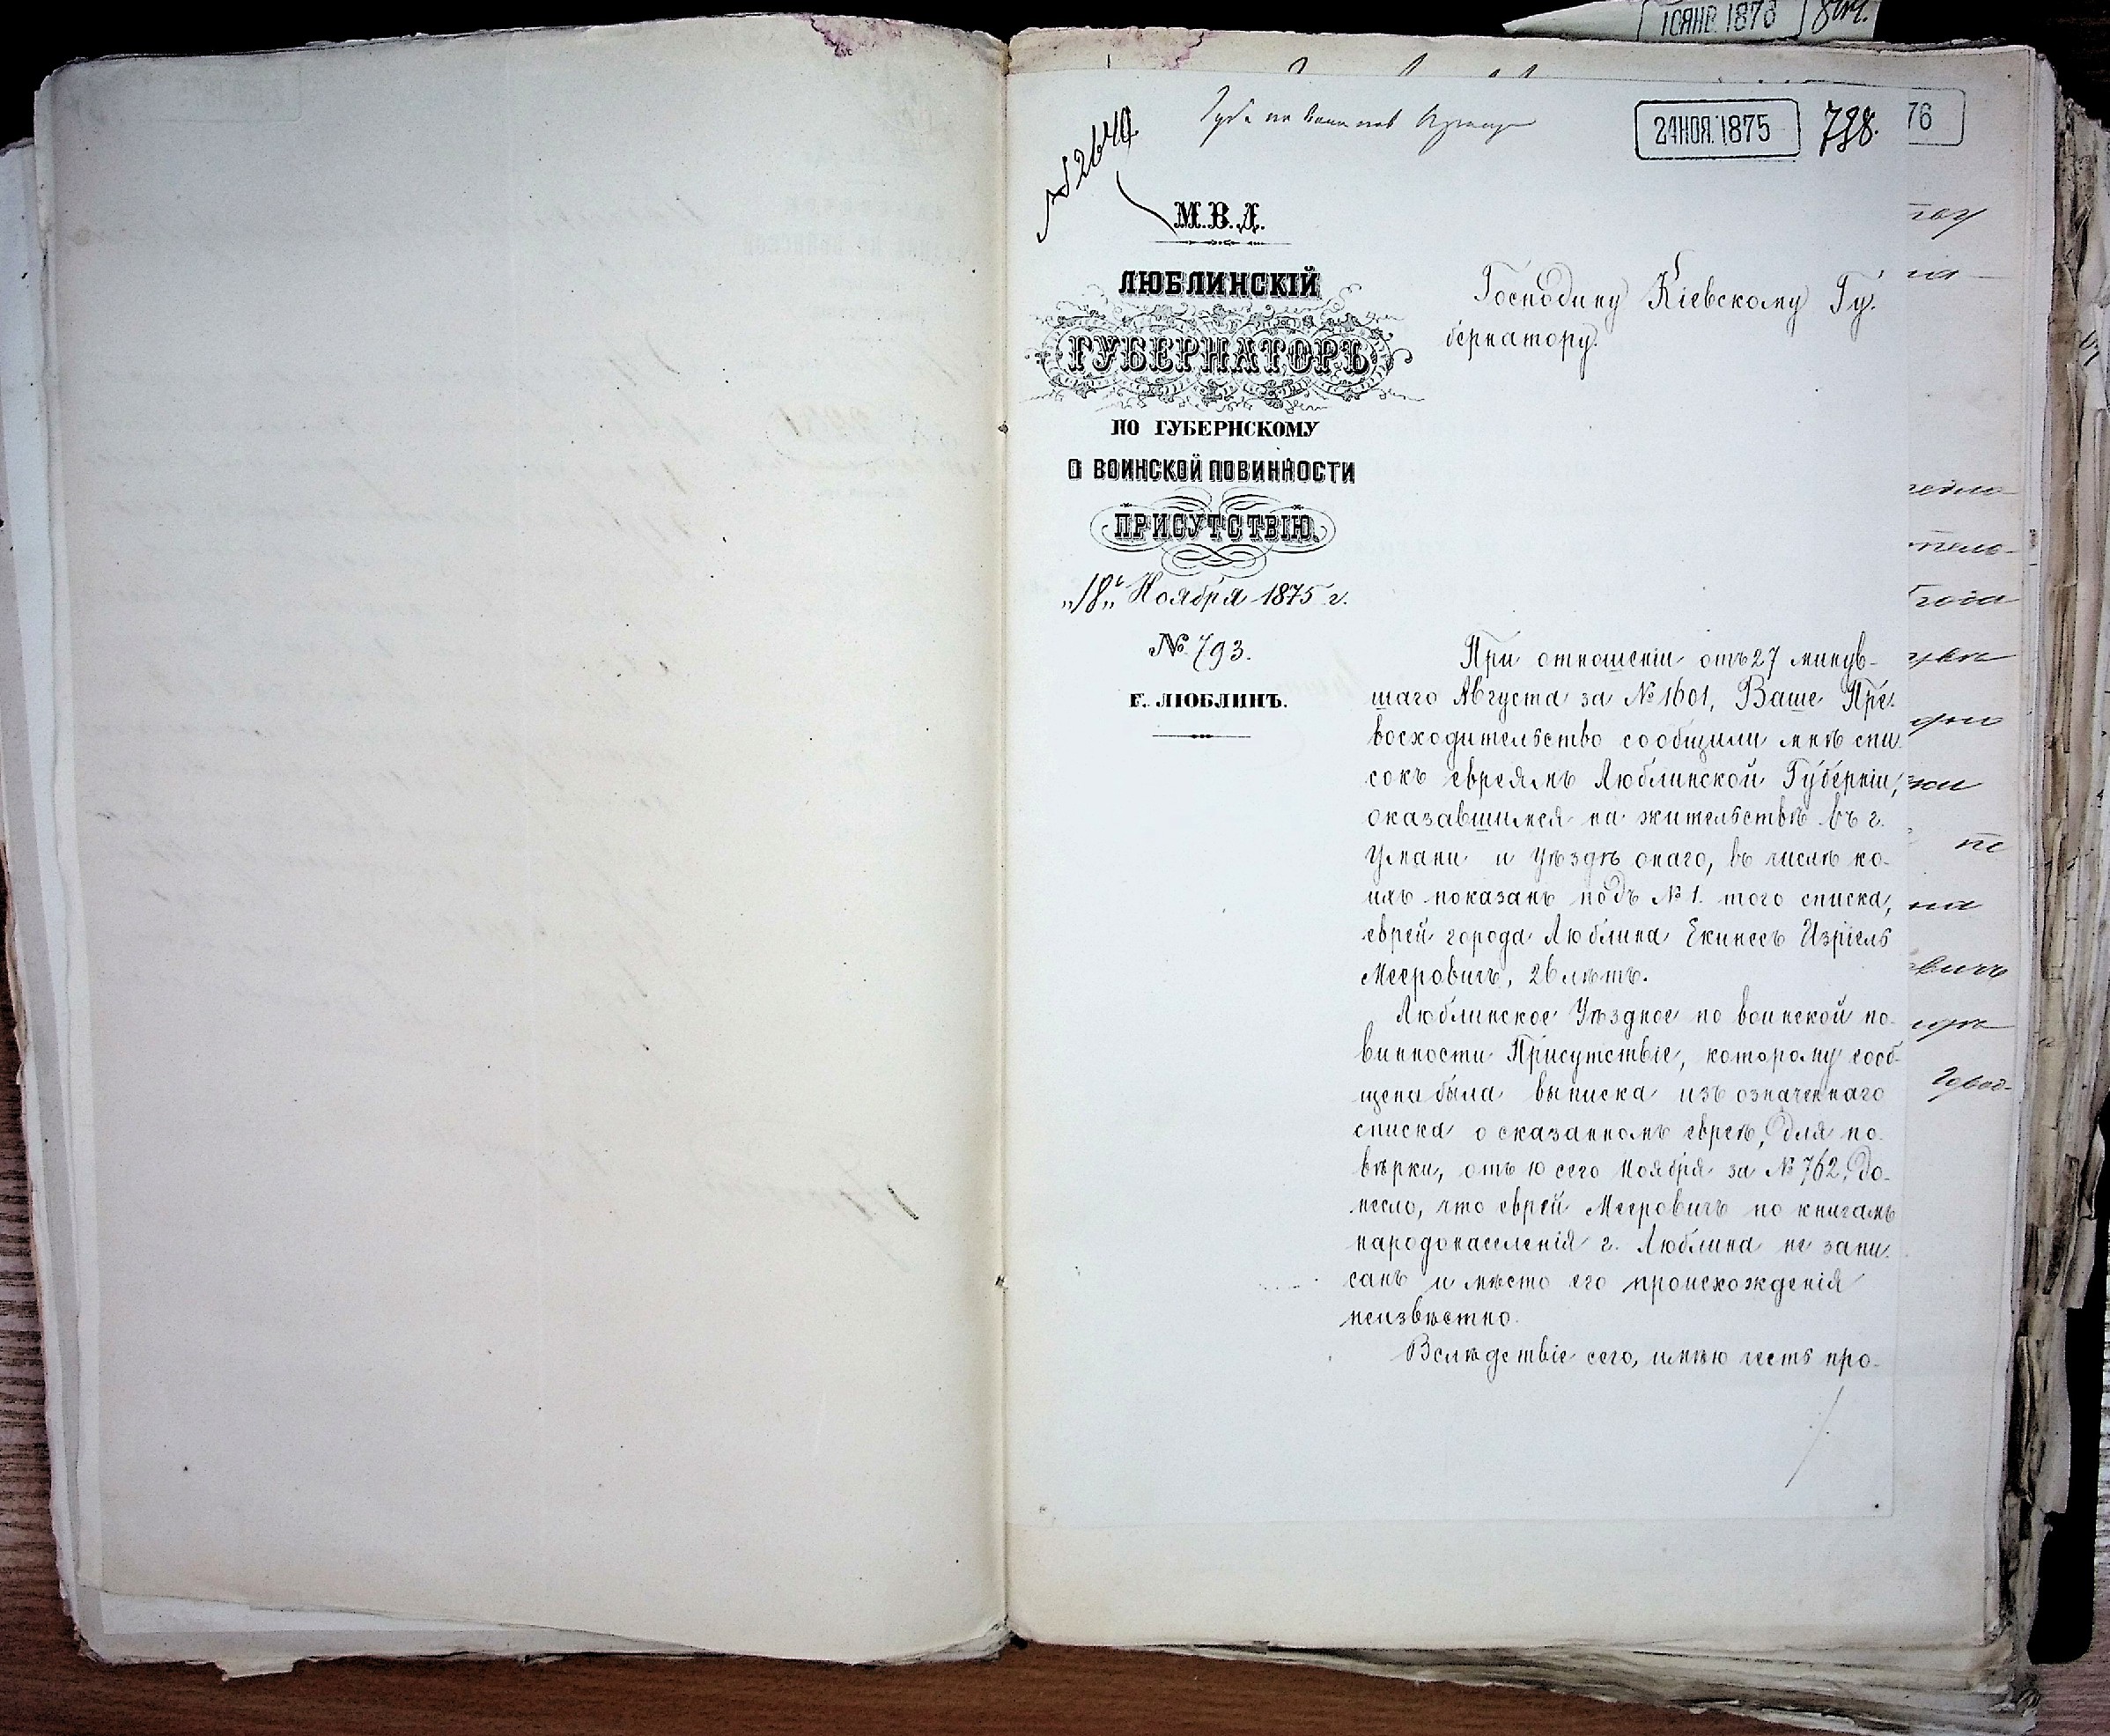 10 ЯНВ. 1876
24 НОЯ. 1875
798.
76
№ 2640
М. В. Д.
ЛЮБЛИНСКІЙ
ГУБЕРНАТОРЪ
ПО ГУБЕРНСКОМУ
О ВОИНСКОЙ ПОВИННОСТИ
ПРИСУТСТВІЮ.
„18" Ноября 1875 г.
№ 793.
Г. ЛЮБЛИНЪ.
Господину Кіевскому Гу-
бернатору.
При отношеніи отъ 27 минув-
шаго Августа за № 1601, Ваше Пре-
восходительство сообщили мнѣ спи-
сокъ евреямъ Люблинской Губерніи,
оказавшимся на жительствѣ въ г.
Умани и уѣздѣ онаго, въ числѣ ко-
ихъ показанъ подъ № 1. того списка,
еврей города Люблина Екинесъ Изріель
Мееровичъ, 26 лѣтъ.
Люблинское Уѣздное по воинской по-
винности Присутствіе, которому сооб-
щена была выписка изъ означеннаго
списка о сказанномъ евреѣ, для по-
вѣрки, отъ 10 сего Ноября за № 762, до-
несло, что еврей Мееровичъ по книгамъ
народонаселенія г. Люблина не запи-
санъ и мѣсто его происхожденія
неизвѣстно.
Вслѣдствіе сего, имѣю честь про-